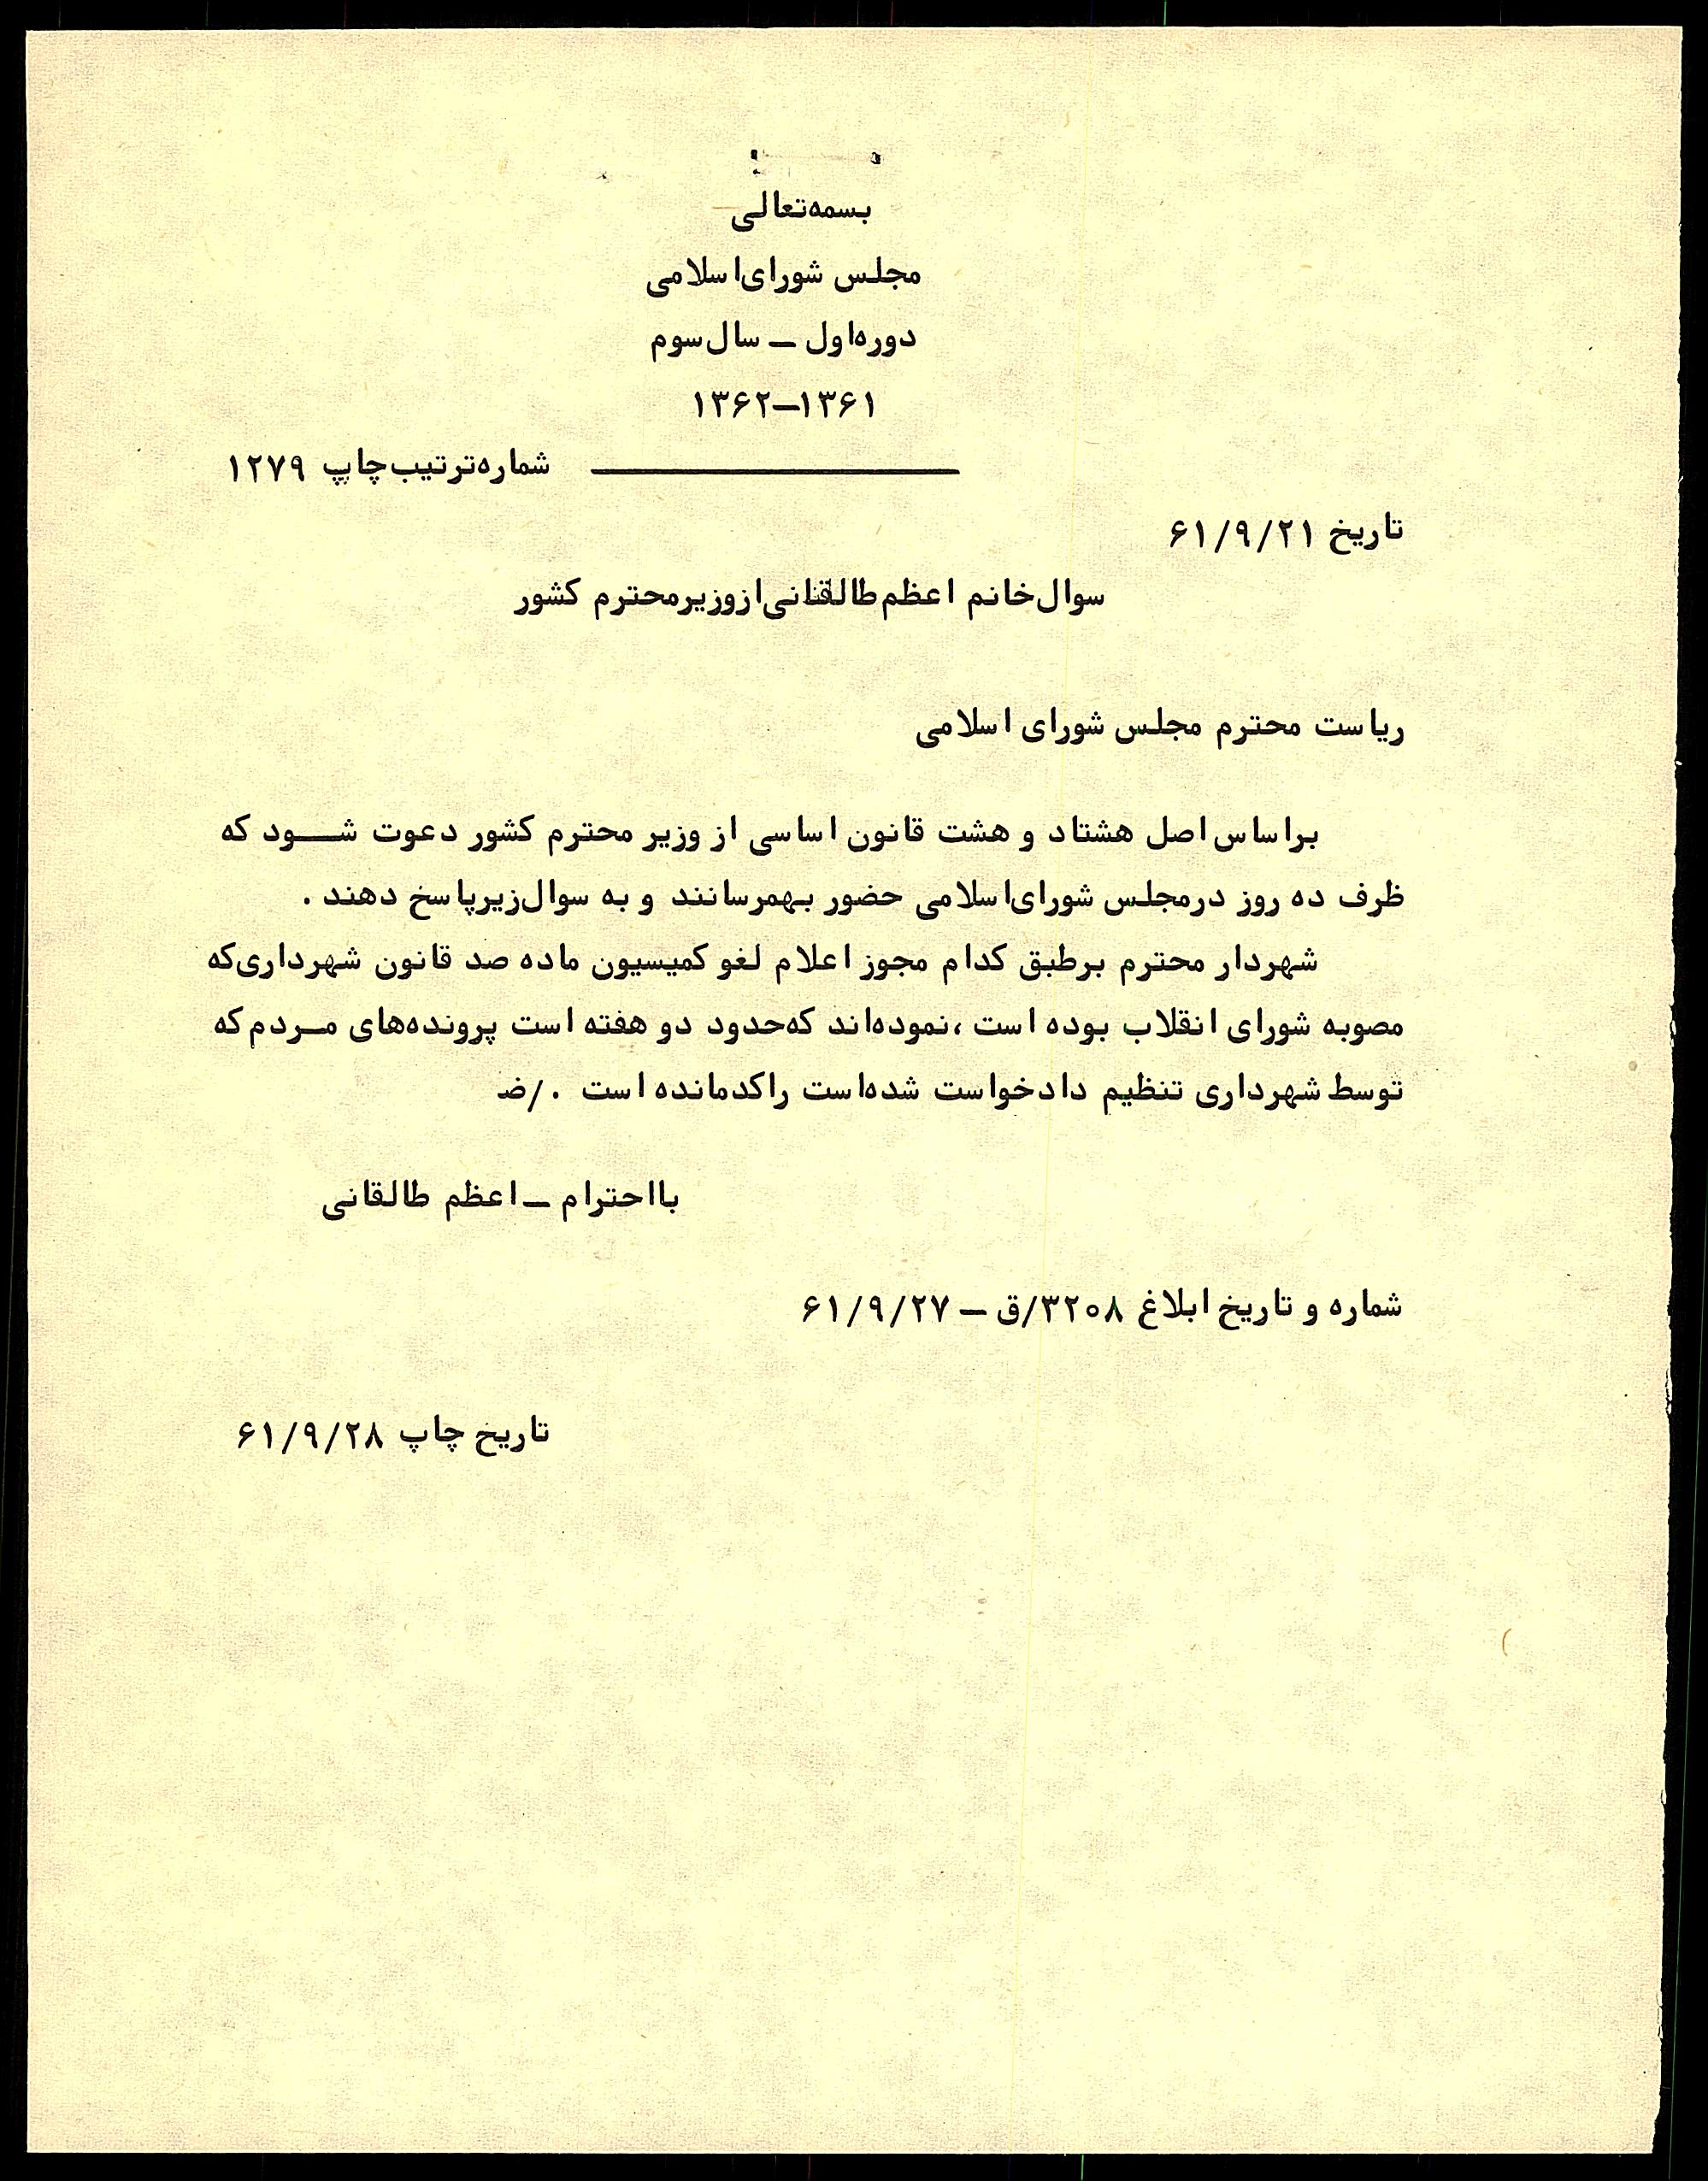 بسمه‌تعالی
مجلس شورای‌اسلامی
دوره‌اول – سال‌سوم
۱۳۶۱–۱۳۶۲
شماره‌ترتیب‌چاپ ۱۲۷۹
تاریخ ۶۱/۹/۲۱
سوال‌خانم اعظم‌طالقانی‌ازوزیرمحترم کشور
ریاست محترم مجلس شورای اسلامی
براساس‌اصل هشتاد و هشت قانون اساسی از وزیر محترم کشور دعوت شــود که
ظرف ده روز درمجلس شورای‌اسلامی حضور بهمرسانند و به سوال‌زیرپاسخ دهند .
شهردار محترم برطبق کدام مجوز اعلام لغو کمیسیون ماده صد قانون شهرداری‌که
مصوبه شورای انقلاب بوده است ،نموده‌اند که‌حدود دو هفته است پرونده‌های مـردم که
توسط شهرداری تنظیم دادخواست شده‌است راکدمانده است ./ض
بااحترام – اعظم طالقانی
شماره و تاریخ ابلاغ ۳۲۰۸/ق – ۶۱/۹/۲۷
تاریخ چاپ ۶۱/۹/۲۸